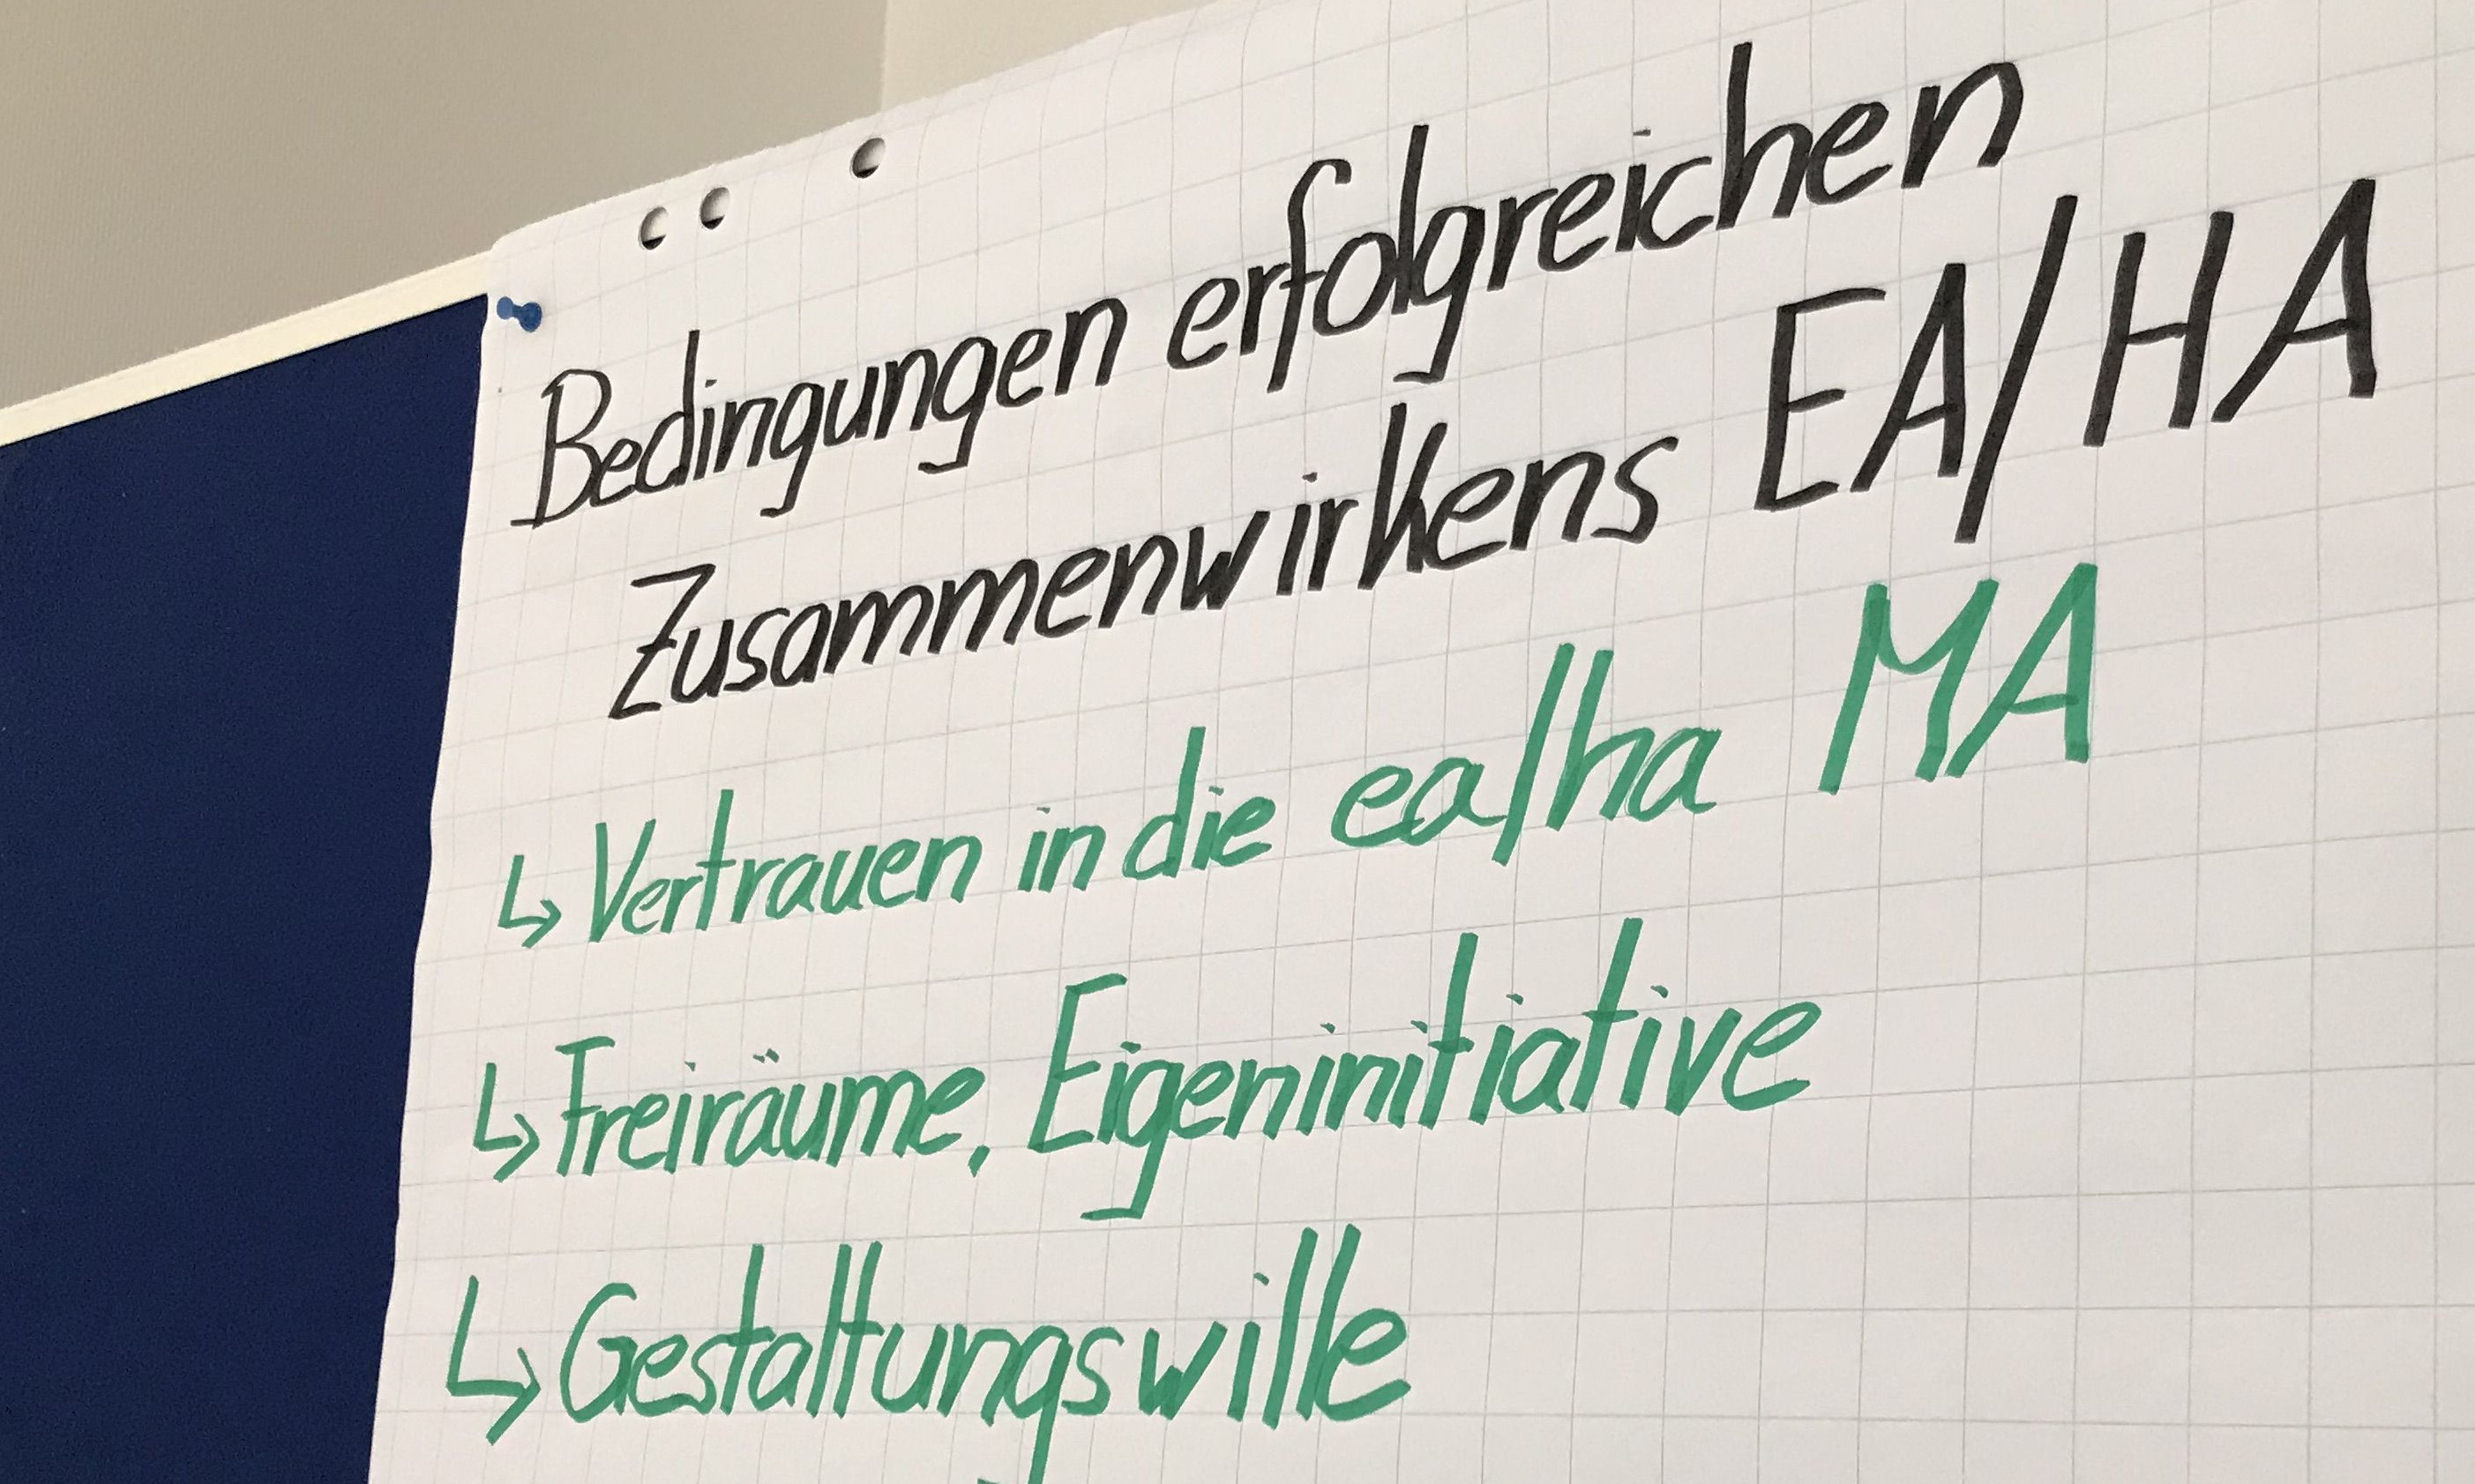 Bedingungen erfolgreichen
Zusammenwirkens EA/HA
↳ Vertrauen in die ea/ha MA
↳ Freiräume, Eigeninitiative
↳ Gestaltungswille